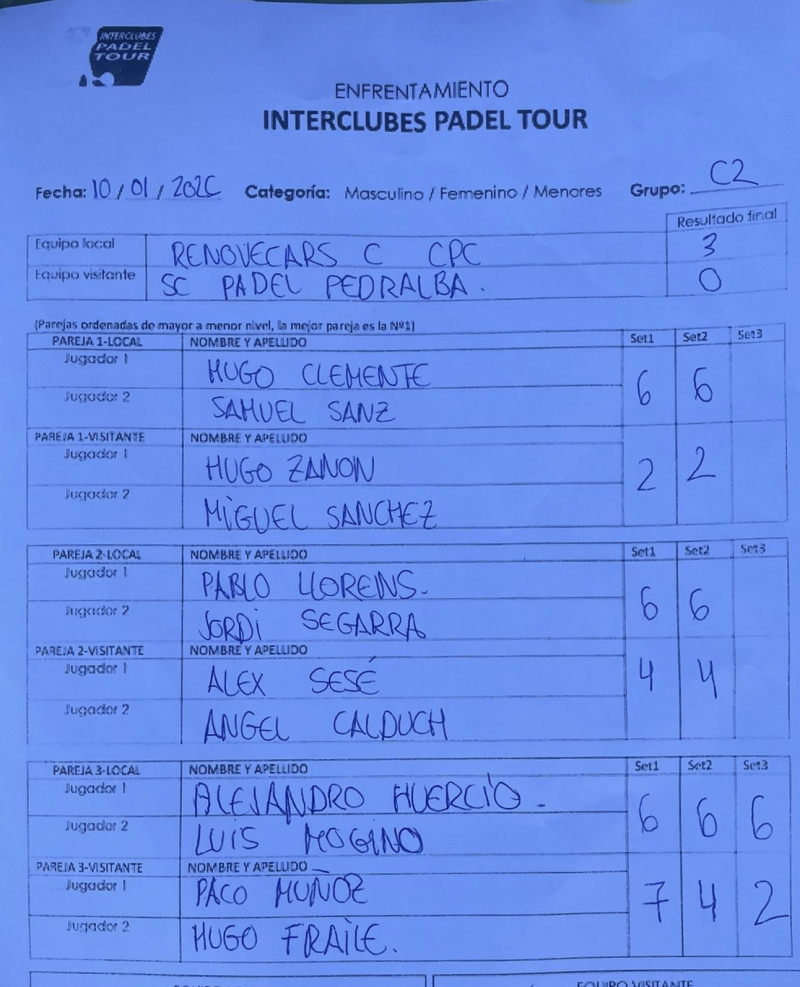 INTERCLUBES
PADEL
TOUR
ENFRENTAMIENTO
INTERCLUBES PADEL TOUR
Fecha: 10 / 01 / 202C Categoría: Masculino / Femenino / Menores Grupo: C2
Resultado final
Equipo local RENOVECARS C CPC 3
Equipo visitante SC PADEL PEDRALBA. 0
(Parejas ordenadas de mayor a menor nivel, la mejor pareja es la Nº1)
PAREJA 1-LOCAL NOMBRE Y APELLIDO Set1 Set2 Set3
Jugador 1 HUGO CLEMENTE 6 6
Jugador 2 SAMUEL SANZ
PAREJA 1-VISITANTE NOMBRE Y APELLIDO
Jugador 1 HUGO ZANON 2 2
Jugador 2 MIGUEL SANCHEZ
PAREJA 2-LOCAL NOMBRE Y APELLIDO Set1 Set2 Set3
Jugador 1 PABLO LLORENS. 6 6
Jugador 2 JORDI SEGARRA
PAREJA 2-VISITANTE NOMBRE Y APELLIDO
Jugador 1 ALEX SESÉ 4 4
Jugador 2 ANGEL CALDUCH
PAREJA 3-LOCAL NOMBRE Y APELLIDO Set1 Set2 Set3
Jugador 1 ALEJANDRO HUERCIO. 6 6 6
Jugador 2 LUIS MOGINO
PAREJA 3-VISITANTE NOMBRE Y APELLIDO
Jugador 1 PACO MUÑOZ 7 4 2
Jugador 2 HUGO FRAILE.
EQUIPO VISITANTE